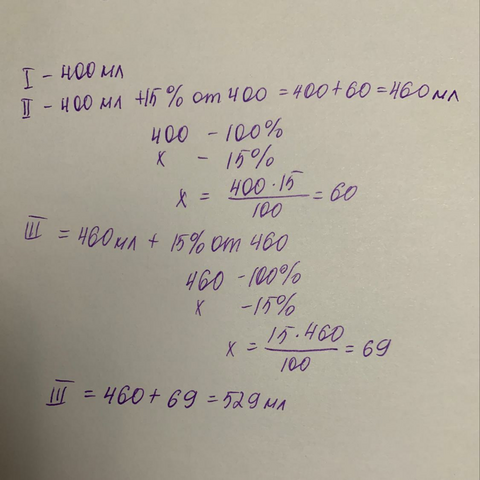 I - 400 мл
II - 400 мл +15% от 400 = 400+60 = 460 мл
400 - 100%
x - 15%
x = 400·15/100 = 60
III = 460 мл + 15% от 460
460 - 100%
x - 15%
x = 15·460/100 = 69
III = 460 + 69 = 529 мл